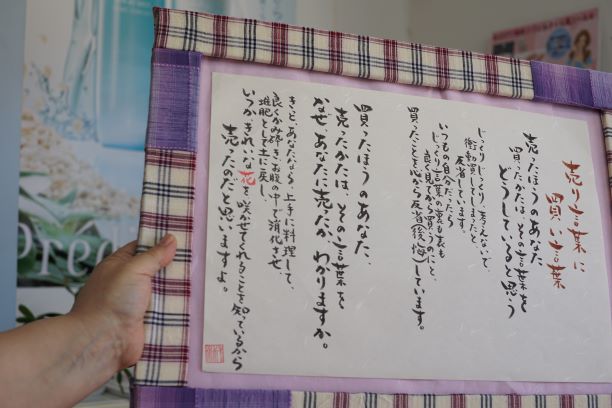 売り言葉に
買い言葉
売ったほうのあなた
買ったかたは、その言葉を
どうしていると思う
じっくりじっくり、考えないで、
衝動買してしまったと、
反省しています。
いつもの自分だったら
じっくり言葉の裏も表も
良く見てから買うのにと、
買ったことを心から反省(後悔)しています。
買ったほうのあなた、
売ったかたは、その言葉を
なぜ、あなたに売ったか、わかりますか。
きっと、あなたなら、上手に料理して、
良くかみ砕きお腹の中で消化させ
堆肥として土に戻し、
いつかきれいな花を咲かせてくれることを知っているから
売ったのだと思いますよ。